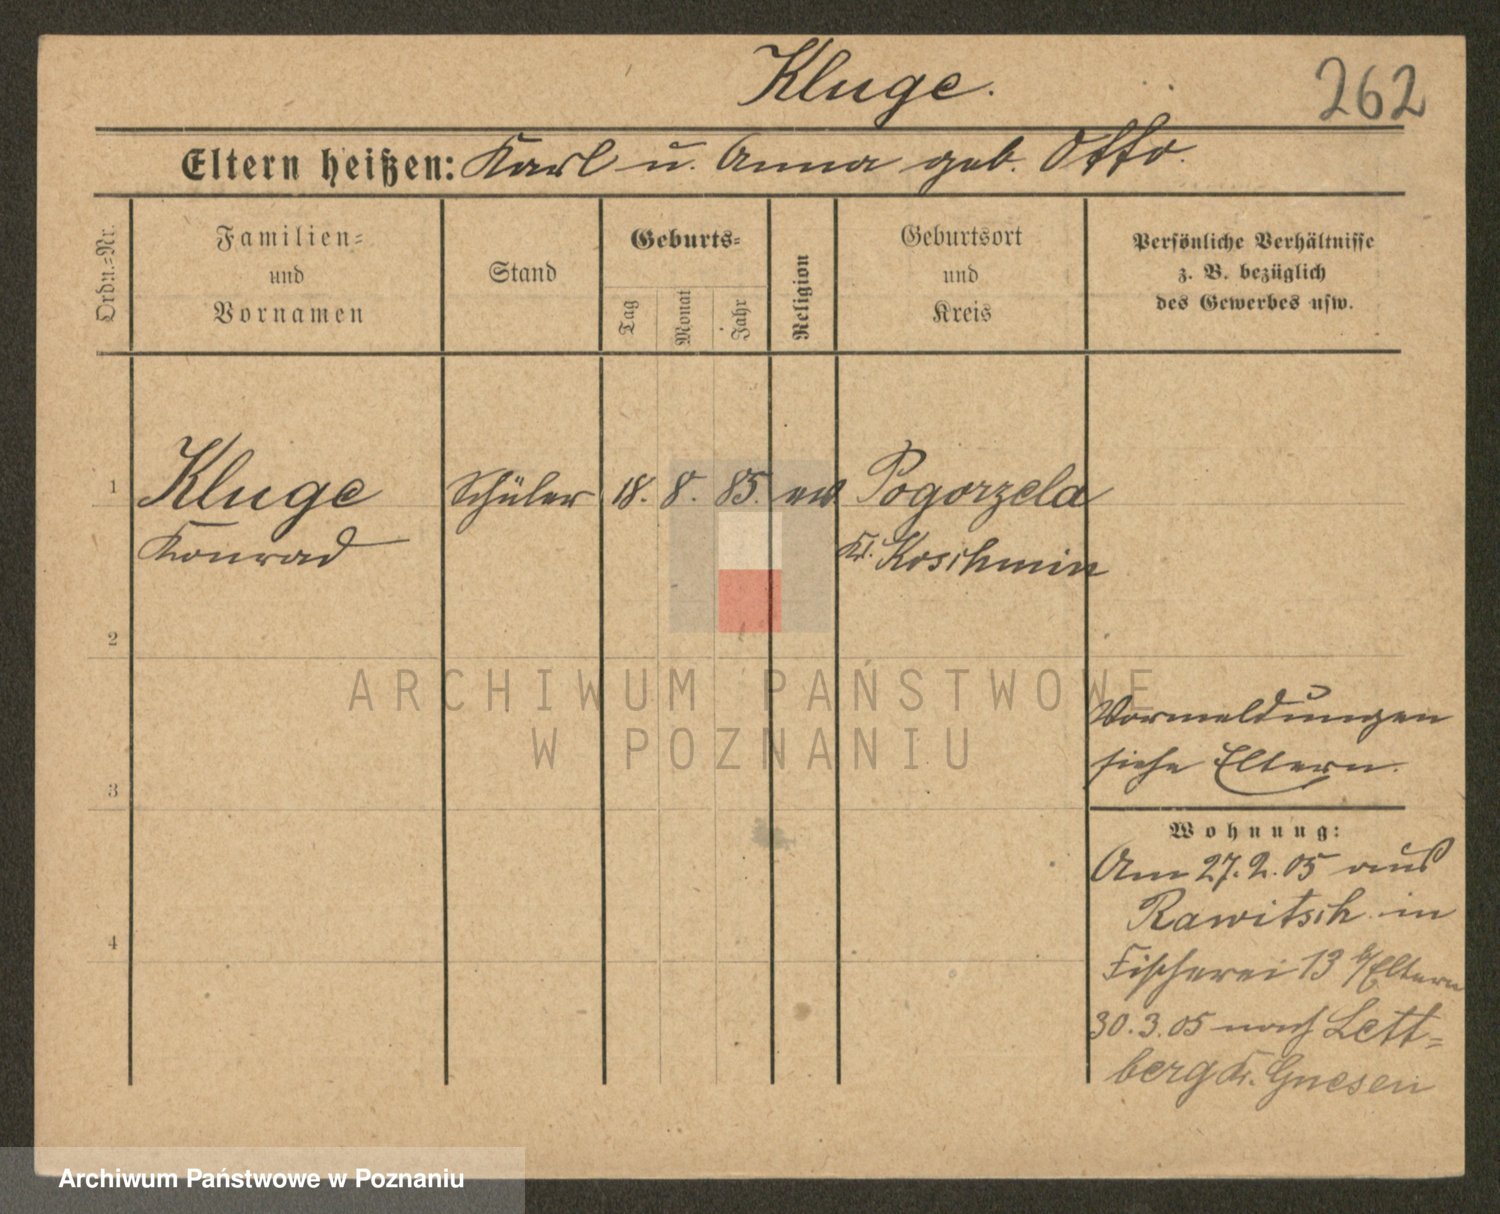 Kluge.
262
Eltern heißen: Karl u. Anna geb. Otto.
Ordn.-Nr.
Familien-
und
Vornamen
Stand
Geburts-
Tag
Monat
Jahr
Religion
Geburtsort
und
Kreis
Persönliche Verhältnisse
z. B. bezüglich
des Gewerbes usw.
1 Kluge Schüler 18. 8. 85. ev Pogorzela
Konrad Kr. Koschmin
2
ARCHIWUM PAŃSTWOWE
W POZNANIU
Vormeldungen
siehe Eltern.
3
Wohnung:
Am 27.2.05 aus
Rawitsch in
4
Fischerei 13 b/Eltern
30.3.05 nach Lett-
berg Kr. Gnesen
Archiwum Państwowe w Poznaniu